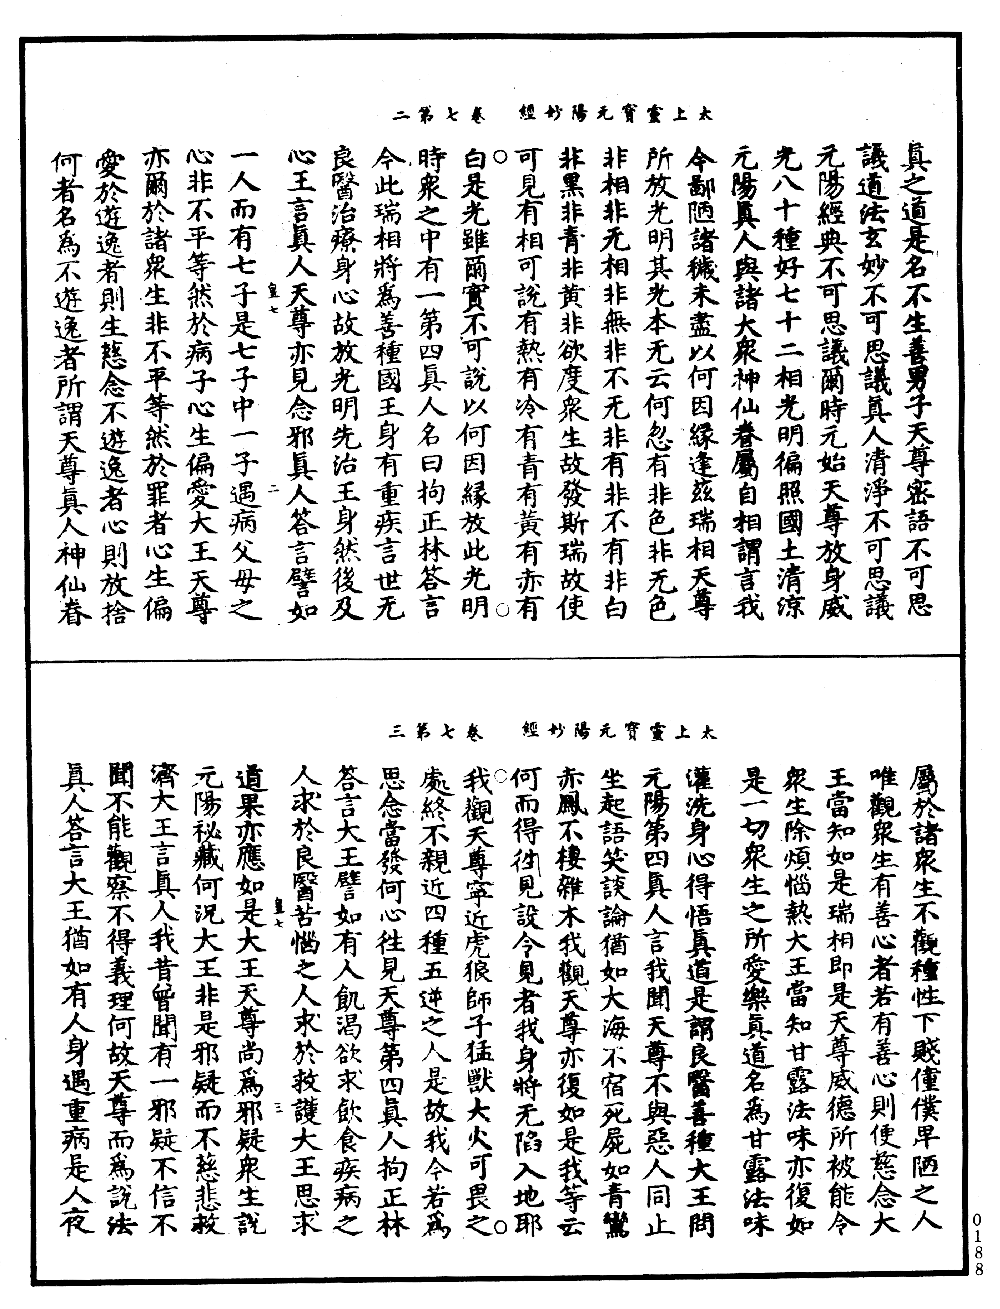 太上靈寶元陽妙經　卷七第二
真之道是名不生善男子天尊密語不可思
議道法玄妙不可思議真人清淨不可思議
元陽經典不可思議爾時元始天尊放身威
光八十種好七十二相光明徧照國土清涼
元陽真人與諸大衆神仙眷屬自相謂言我
今鄙陋諸穢未盡以何因緣逢茲瑞相天尊
所放光明其光本无云何忽有非色非无色
非相非无相非無非不无非有非不有非白
非黑非青非黃非欲度衆生故發斯瑞故使
可見有相可說有熱有冷有青有黃有亦有
白是光雖爾實不可說以何因緣放此光明
時衆之中有一第四真人名曰拘正林荅言
今此瑞相將爲善種國王身有重疾言世无
良醫治療身心故放光明先治王身然後及
心王言真人天尊亦見念邪真人荅言譬如
皇七　二
一人而有七子是七子中一子遇病父母之
心非不平等然於病子心生偏愛大王天尊
亦爾於諸衆生非不平等然於罪者心生偏
愛於遊逸者則生慈念不遊逸者心則放捨
何者名爲不遊逸者所謂天尊真人神仙眷
太上靈寶元陽妙經　卷七第三
屬於諸衆生不觀種性下賤僮僕卑陋之人
唯觀衆生有善心者若有善心則便慈念大
王當知如是瑞相即是天尊威德所被能令
衆生除煩惱熱大王當知甘露法味亦復如
是一切衆生之所愛樂真道名爲甘露法味
灌洗身心得悟真道是謂良醫善種大王問
元陽第四真人言我聞天尊不與惡人同止
坐起語笑談論猶如大海不宿死屍如青鸞
亦鳳不棲雜木我觀天尊亦復如是我等云
何而得往見設令見者我身將无陷入地耶
我觀天尊寧近虎狼師子猛獸大火可畏之
處終不親近四種五逆之人是故我今若爲
思念當發何心往見天尊第四真人拘正林
荅言大王譬如有人飢渴欲求飲食疾病之
人求於良醫苦惱之人求於救護大王思求
皇七　三
道果亦應如是大王天尊尚爲邪疑衆生說
元陽秘藏何況大王非是邪疑而不慈悲救
濟大王言真人我昔曾聞有一邪疑不信不
聞不能觀察不得義理何故天尊而爲說法
真人荅言大王猶如有人身遇重病是人夜
0188